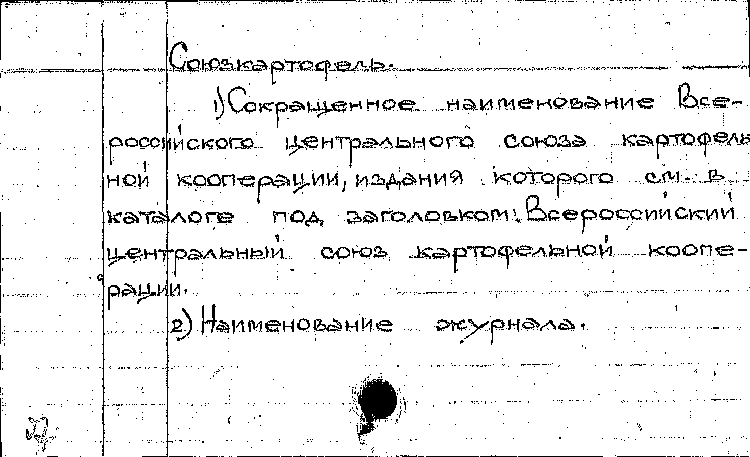 Союзкартофель.
1) Сокращенное наименование Все-
российского центрального союза картофель
ной кооперации, издания которого см. в
каталоге под заголовком: Всероссийский
центральный союз картофельной коопе-
рации.
2) Наименование журнала.